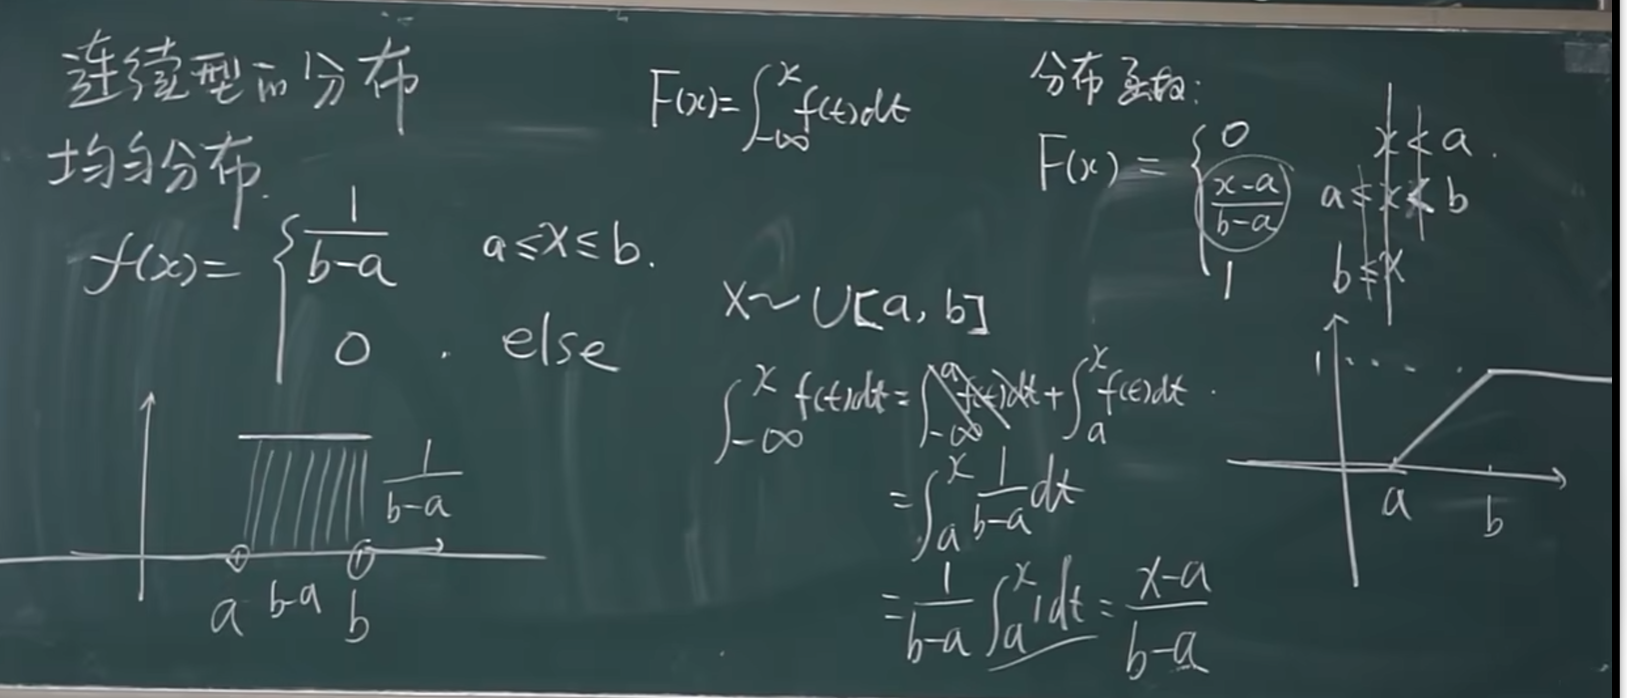 连续型的分布
均匀分布.
f(x)= { 1/(b-a) a≤x≤b.
0 . else
1/(b-a)
a b-a b
F(x)=∫_{-∞}^{x} f(t)dt
X~U[a, b]
∫_{-∞}^{x} f(t)dt = ∫_{-∞}^{a} f(t)dt + ∫_{a}^{x} f(t)dt .
= ∫_{a}^{x} 1/(b-a) dt
= 1/(b-a) ∫_{a}^{x} 1dt = (x-a)/(b-a)
分布函数:
F(x) = { 0 x<a.
(x-a)/(b-a) a≤x<b
1 b≤x
1
a b